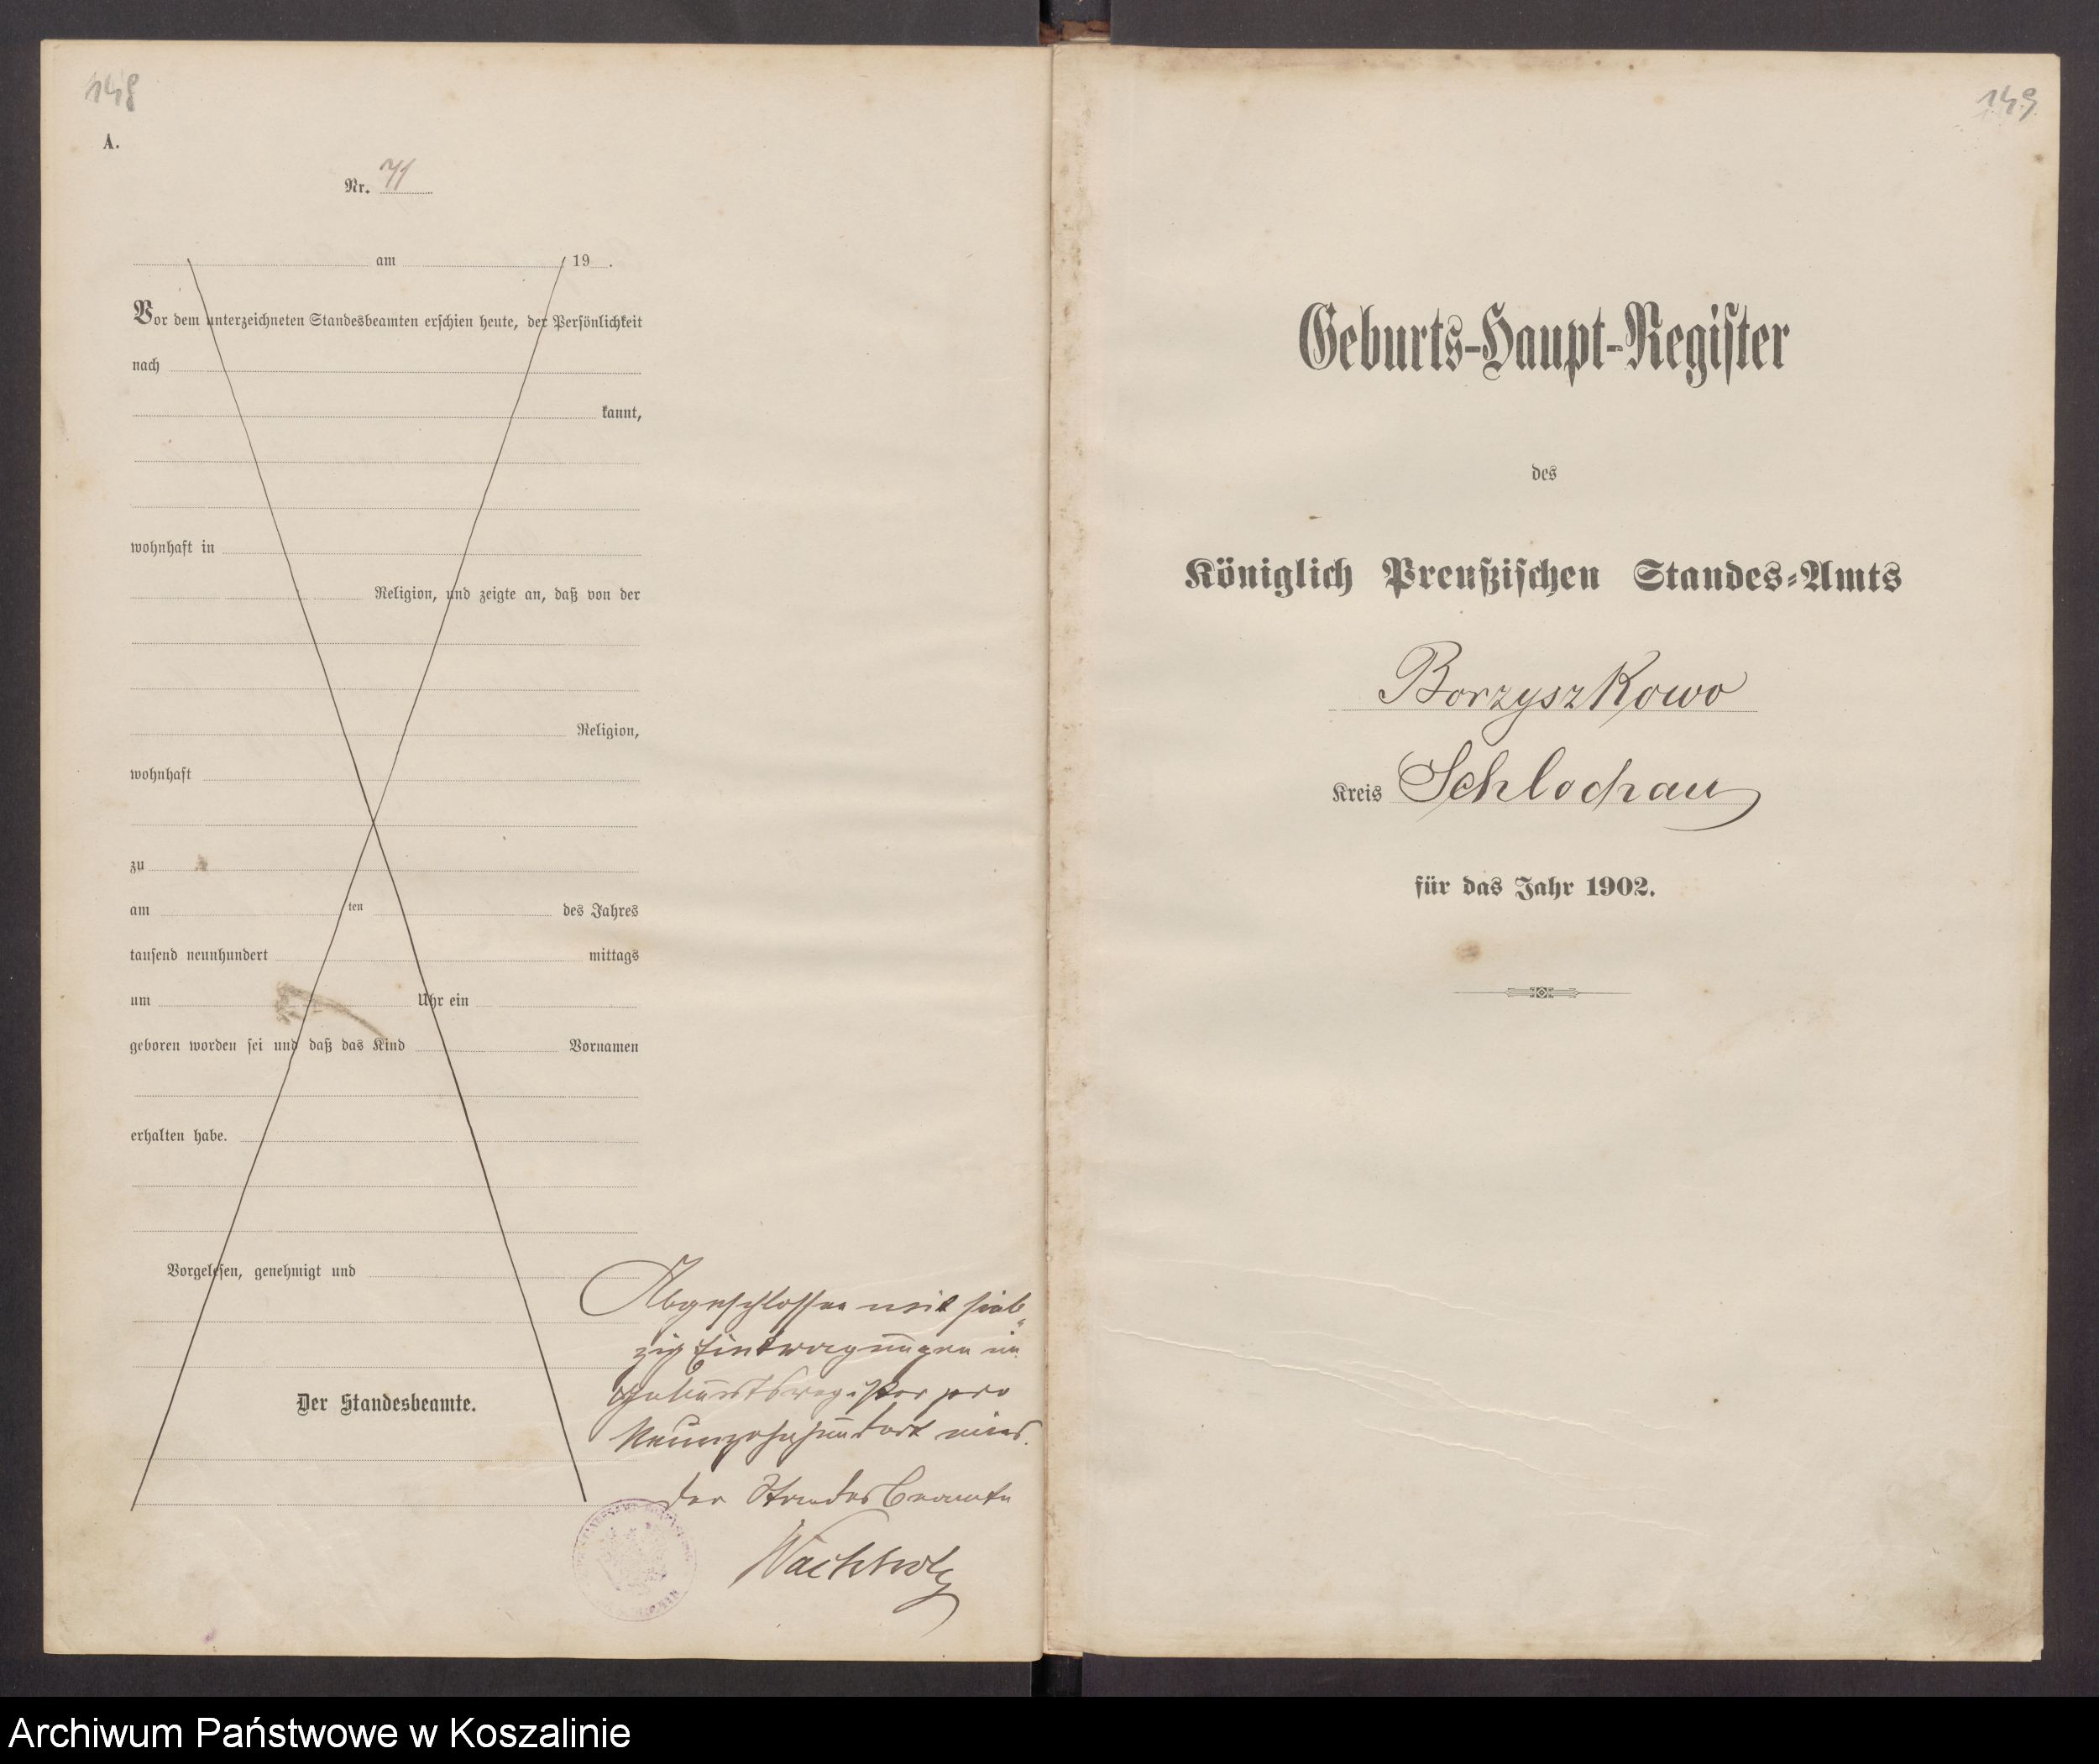 148
A.
Nr. 71
am 19 .
Vor dem unterzeichneten Standesbeamten erschien heute, der Persönlichkeit
nach
kannt,
wohnhaft in
Religion, und zeigte an, daß von der
Religion,
wohnhaft
zu
am ten des Jahres
tausend neunhundert mittags
um Uhr ein
geboren worden sei und daß das Kind Vornamen
erhalten habe.
Vorgelesen, genehmigt und
Der Standesbeamte.
Abgeschlossen mit sieb-
zig Eintragungen im
Geburtsregister pro
Neunzehnhundert eins.
Der Standesbeamte
149
Geburts-Haupt-Register
des
Königlich Preußischen Standes-Amts
Borzyszkowo
Kreis Schlochau
für das Jahr 1902.
Archiwum Państwowe w Koszalinie